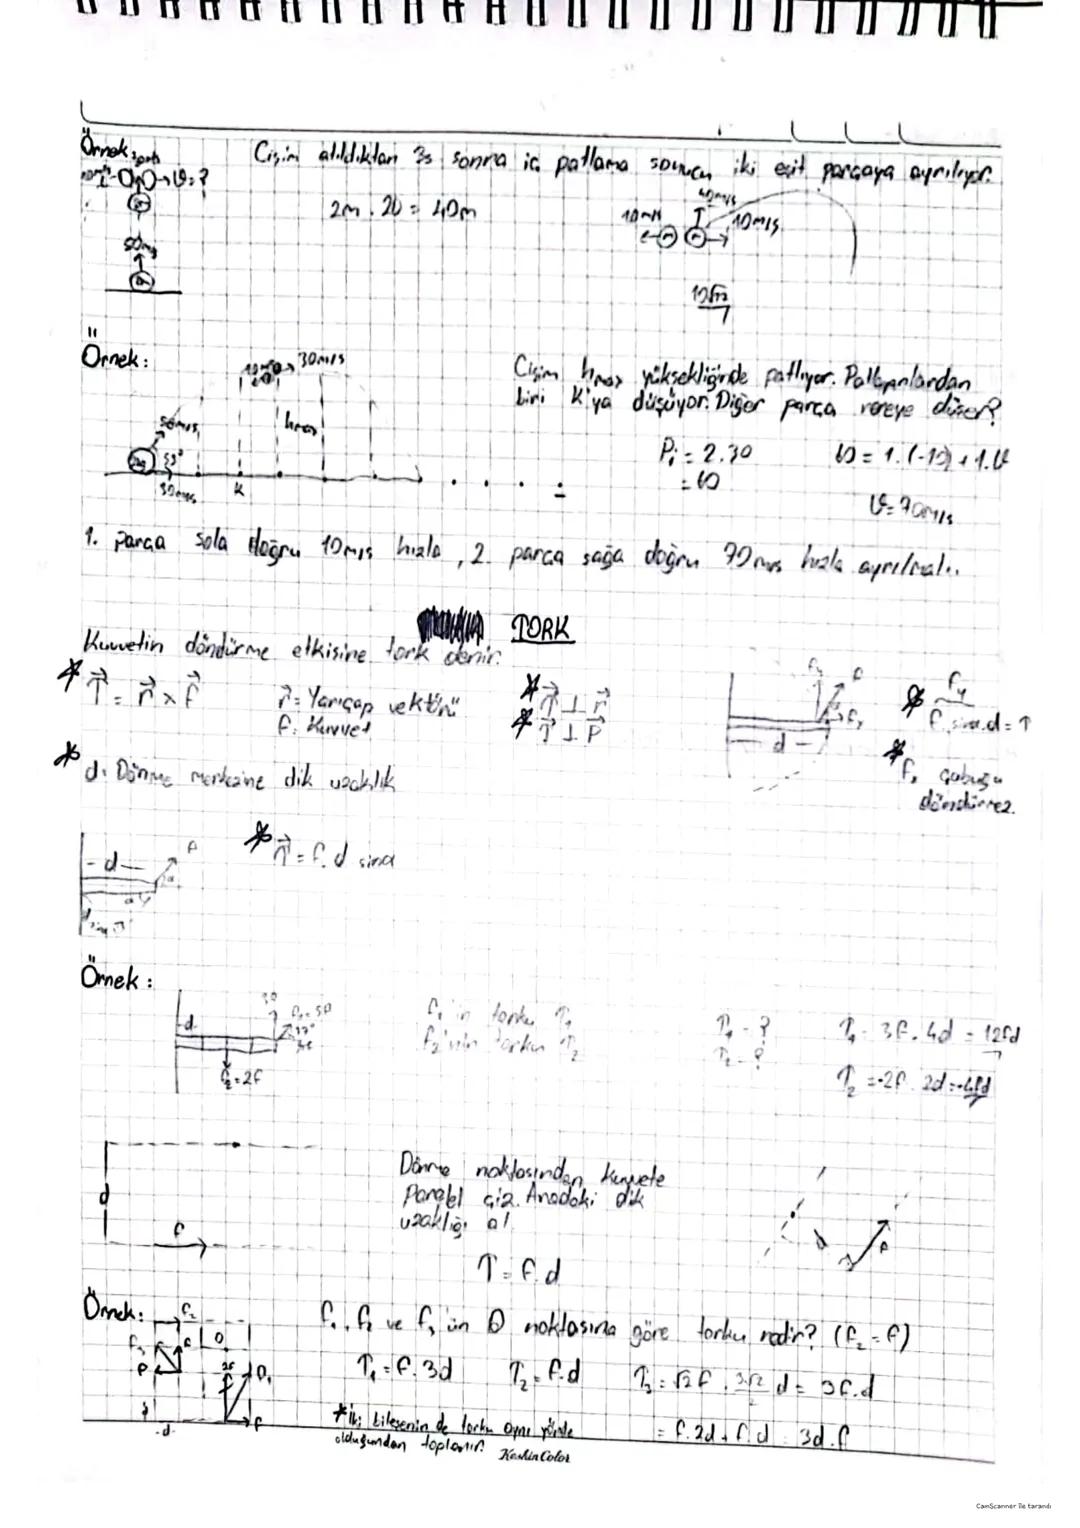 Örnek:
Cisim atıldıktan 3s sonra iç patlama sonucu iki eşit parçaya ayrılıyor.
10m/s
υ=?
2m . 20 = 40m
40m/s
10m/s
10m/s
50m/s
10√17
Örnek:
30m/s
Cisim hmax yüksekliğinde patlıyor. Patlayanlardan
biri K'ya düşüyor. Diğer parça nereye düşer?
50m/s
hmax
Pi = 2.30
= 60
60 = 1.(-10) + 1.υ
53°
30m/s
K
υ = 70m/s
1. parça sola doğru 10m/s hızla, 2. parça sağa doğru 70m/s hızla ayrılmalı.
TORK
Kuvvetin döndürme etkisine tork denir.
T = r x f
r = Yarıçap vektörü
f: Kuvvet
T ⊥ r
T ⊥ F
fy
F
fx
d
fy
f. sinα.d = T
fx çubuğu
döndürmez.
d: Dönme merkezine dik uzaklık
d
F
α
T = f.d sinα
Örnek:
d
F1 = 5F
37°
f2 = 2f
f1'in torku T1
f2'nin torku T2
T1 = ?
T2 = ?
T1 = 3f.4d = 12fd
T2 = -2f.2d = -4fd
d
f
Dönme noktasından kuvvete
Paralel çiz. Aradaki dik
uzaklığı al.
T = f.d
d
F
Örnek:
f1, f2 ve f3'ün O noktasına göre torku nedir? (f2 = f)
f2
f3
O
F1
d
f
T1 = f.3d
T2 = f.d
T3 = √2f . 3√2/2 d = 3f.d
*İki bileşenin de torku aynı yönde
olduğundan toplanır.
= f.2d + f.d = 3d.f
KeskinColor
CamScanner ile tarandı